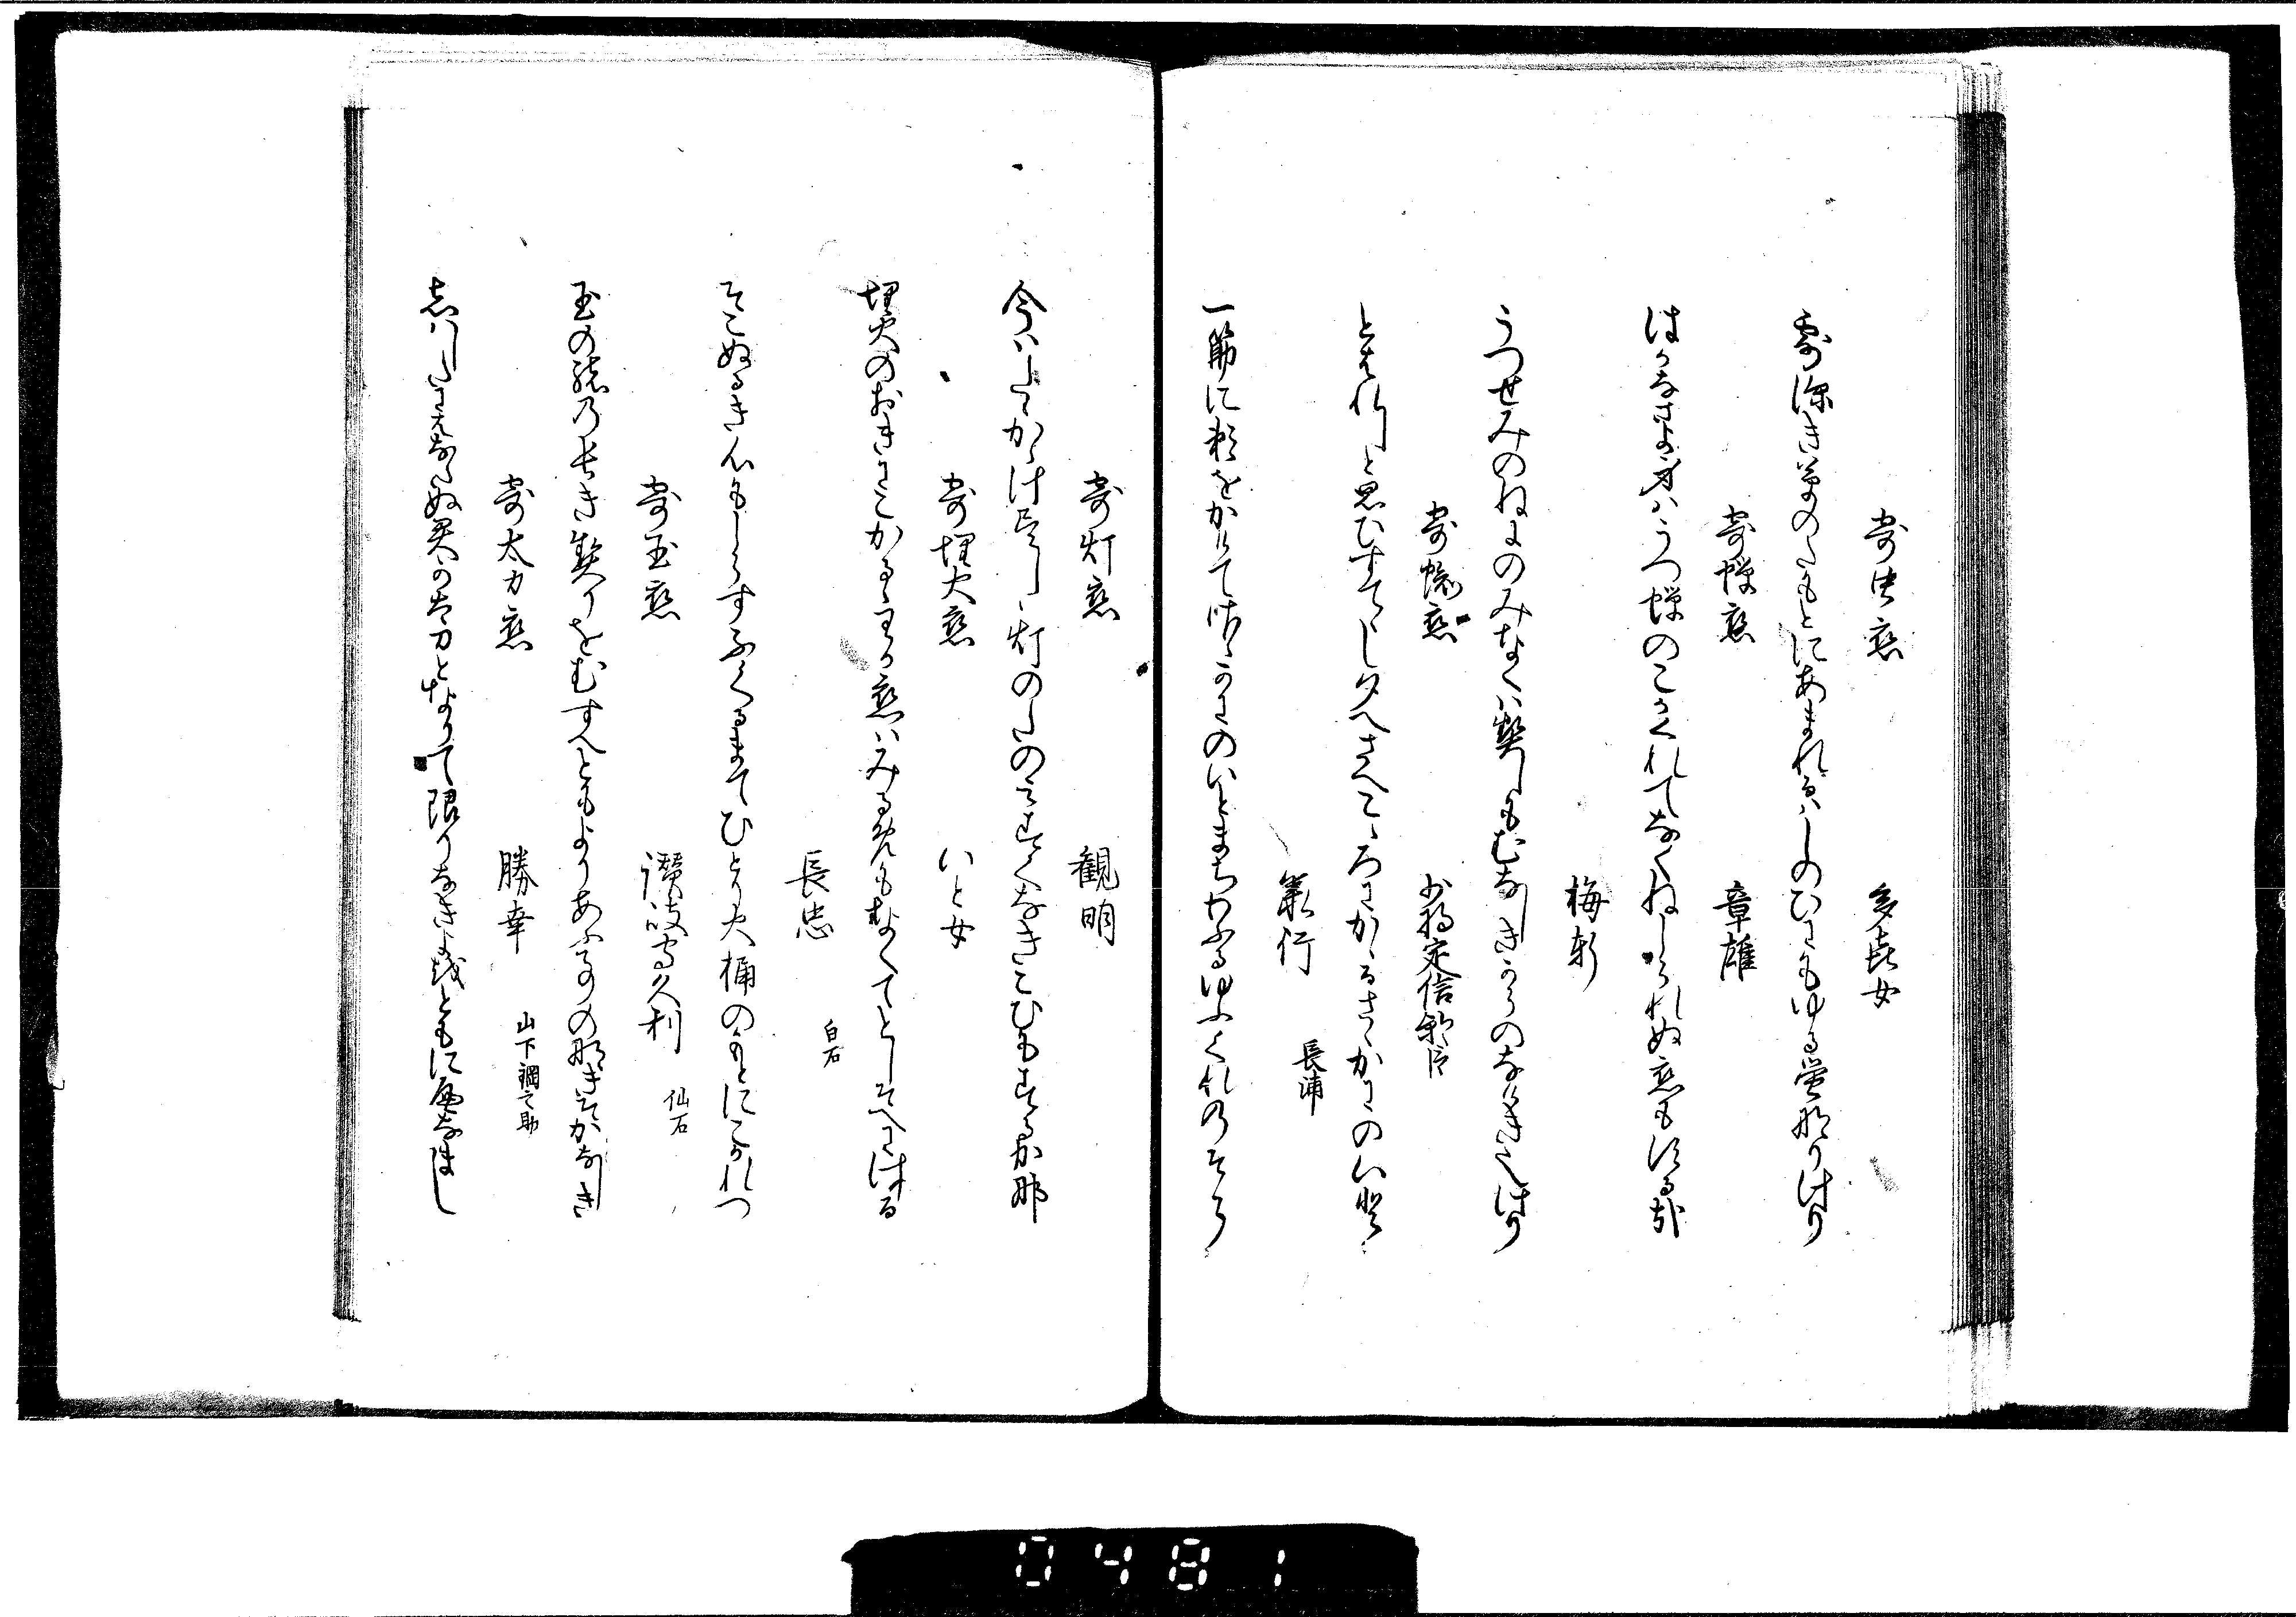 寄虫恋　多喜女
露深き草のたもとにあまれるはしのひにもゆる蛍なりけり
寄蝉恋　章雄
はかなさよ身はうつ蝉のこかくれてなくねしられぬ恋もする哉
梅軒
うつせみのねにのみなくは契しもむなしきからのなけきなりけり
寄蟵恋　少将定信朝臣
とはれしと思ひすてにし夕へさへこゝろにかゝるさゝかにのいと
兼行　長浦
一筋に頼をかけてさゝかにのいとまちわふるゆふくれのそら
寄灯恋　観明
今はたゝかゝけ尽しゝ灯のたのみすくなきこひもするかな
寄埋火恋　いと女
埋火のおきてこかるゝわか恋はみるめもなくてとしそへにける
長忠　白石
そこぬるき心もしらすふくるまてひとり火桶のもとにこかれつ
寄玉恋　讃岐守久利　仙石
玉の緒の長き契りをむすへともよりあふ事のなきそかなしき
寄太刀恋　勝幸　山下綱之助
しはしたにえなれぬ君か太刀となりて限りなきよをともにへなまし
0481